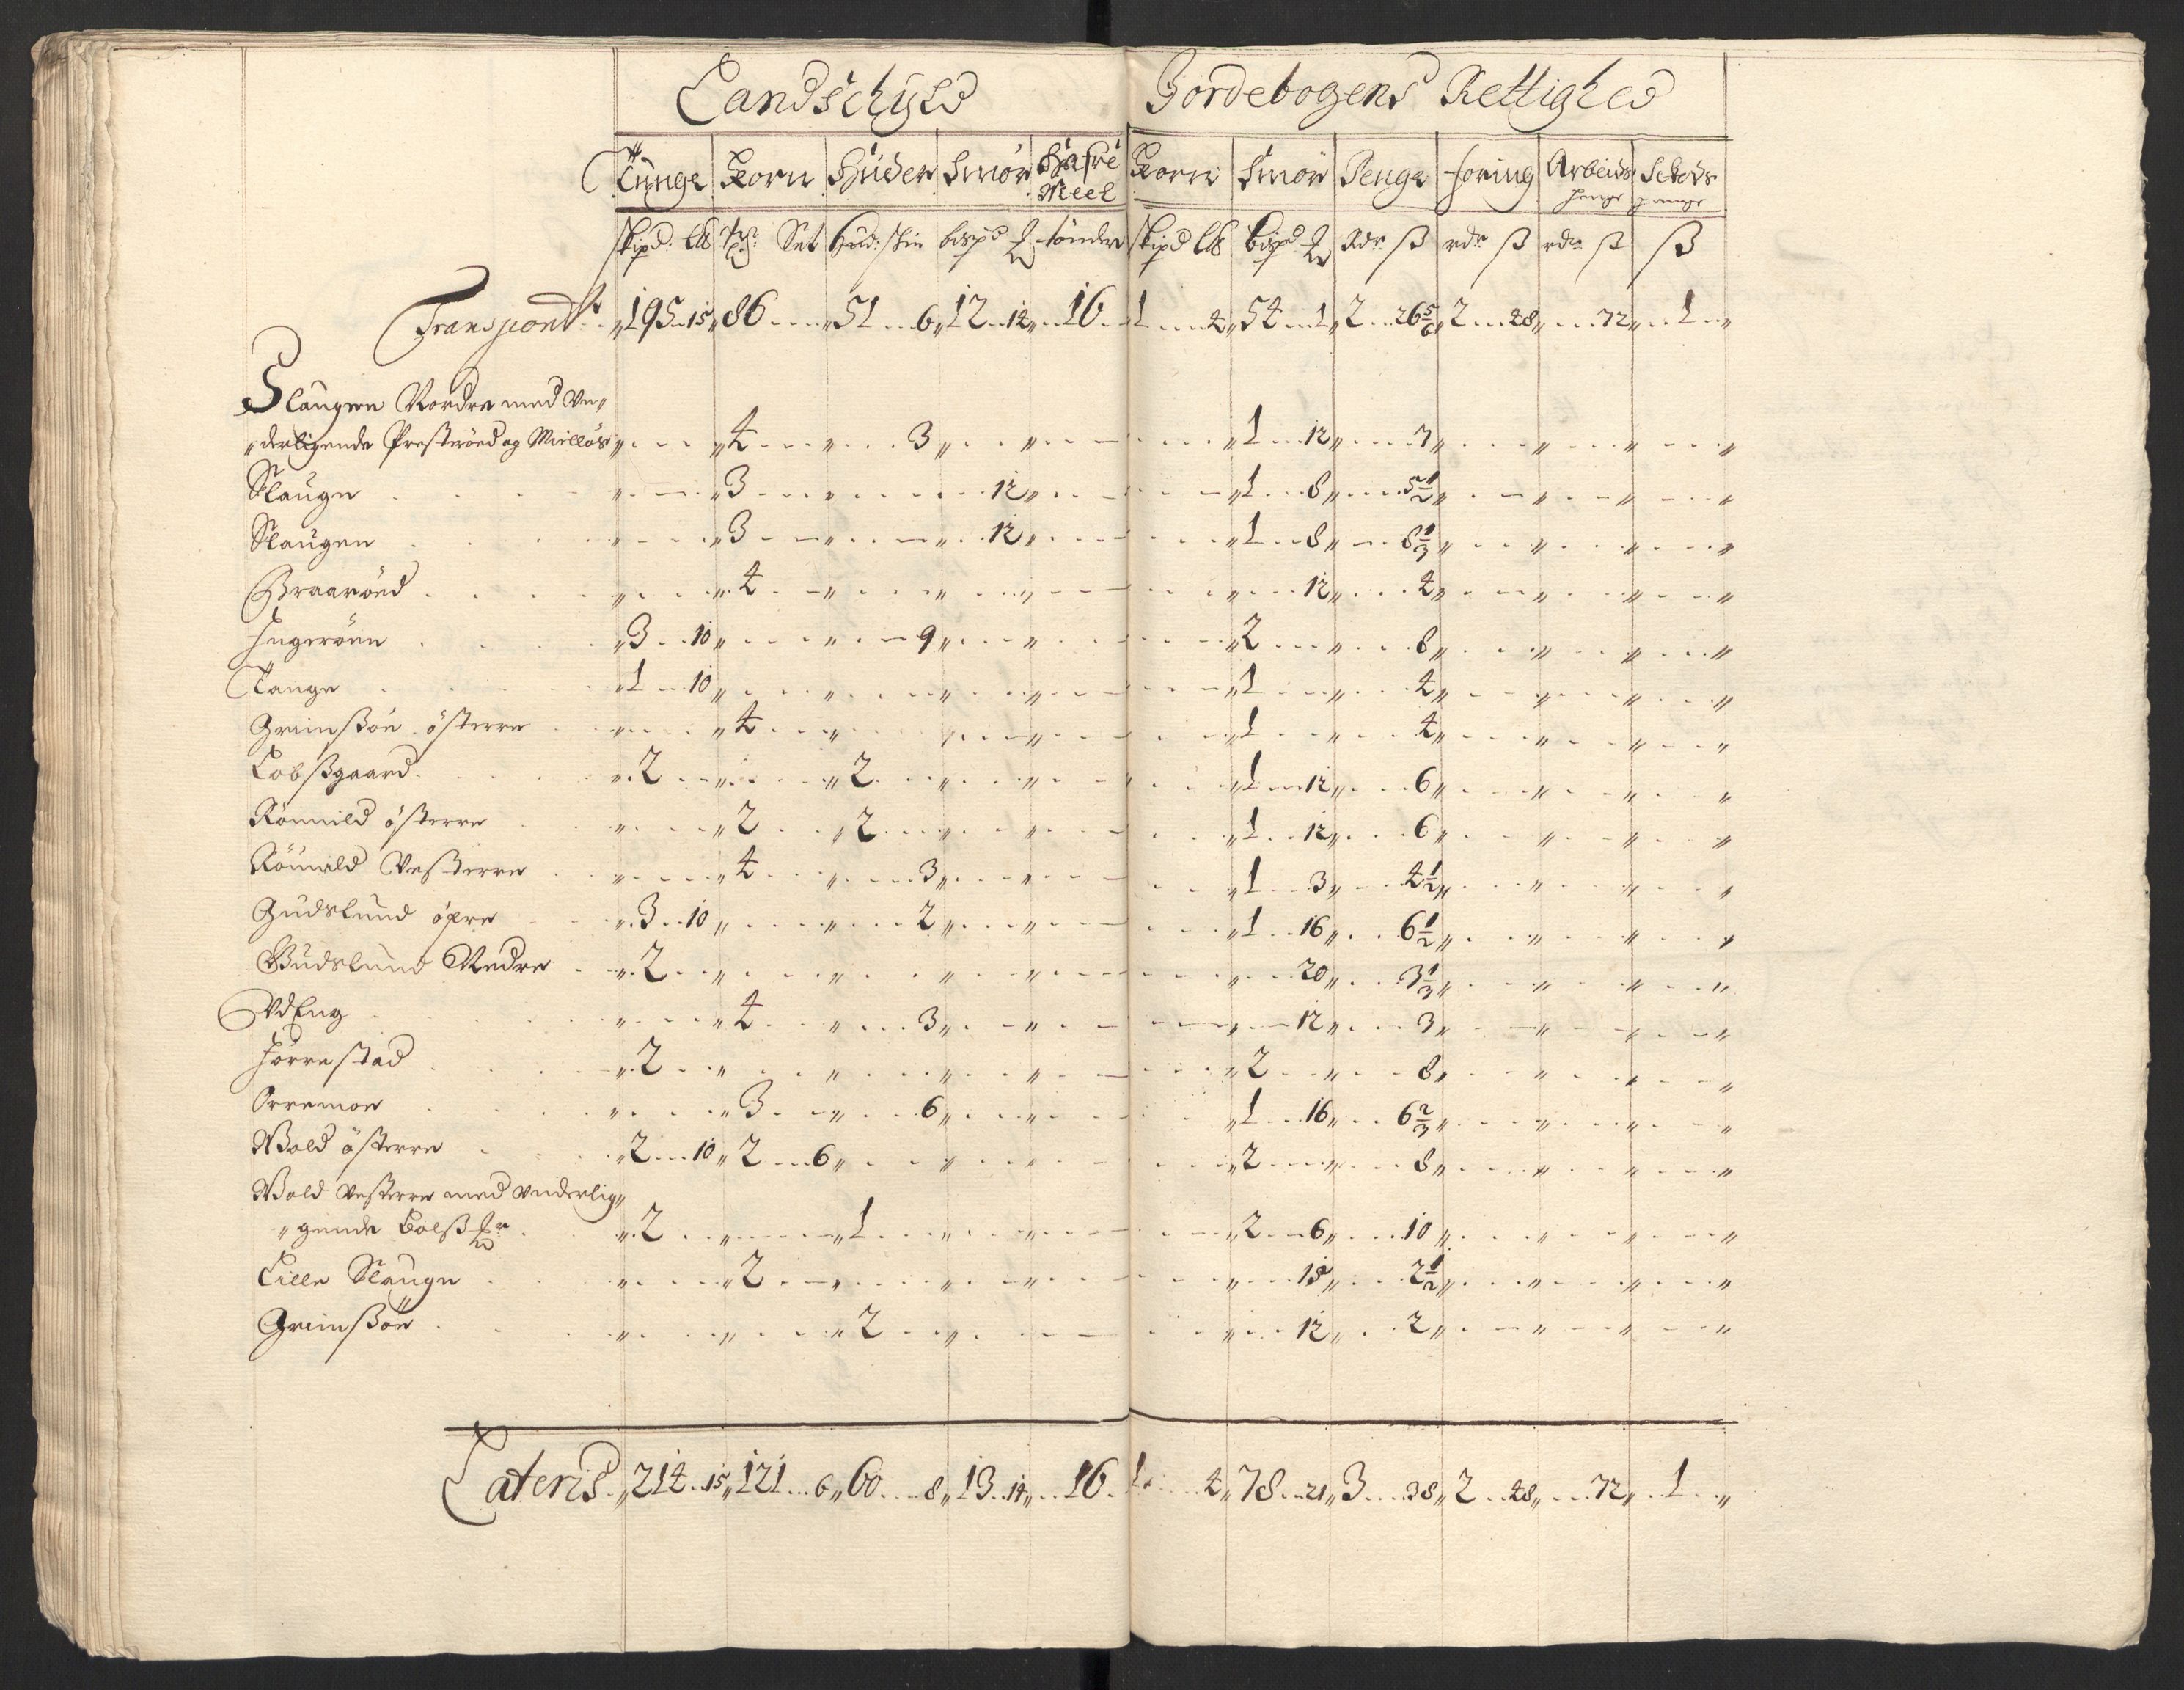 Landschyld Jordebogens Rettighed
Tunge Korn Huder Smør Hafre Meel Korn Smør Penge foring Arbeids penge Schovs penge
skipd: lb Set Hud: skin bispd tønder skipd lb bispd Rdr ß rdr ß rdr ß ß
Transport 195 15 86 51 6 12 12 16 1 4 54 1 2 26 5/6 2 48 72 1
Slaugen Nordre med Un„
„derligende Presterød og Mielløs 4 3 1 12 7
Slaugn 3 12 1 8 5 1/2
Slaugen 3 12 1 8 8 1/3
Braarød 4 12 4
Ingerøen 3 10 9 2 8
Tange 1 10 1 4
Grimsßøe østerre 4 1 4
Lobßgaard 2 2 1 12 6
Rømild østerre 2 2 1 12 6
Rømild Vesterre 4 3 1 3 4 1/2
Gudslund øfre 3 10 2 1 16 6 1/2
Gudslund Nedre 2 20 3 1/3
VdEng 4 3 12 3
Horrestad 2 2 8
Orremoe 3 6 1 16 6 2/3
Wold østerre 2 10 2 6 2 8
Wold Vesterre med Underlig„
„gende Bolß 2 1 2 6 10
Lille Slaugn 2 15 2 1/2
Grimßøe 2 12 2
Lateris 214 15 121 6 60 8 13 14 16 1 4 78 21 3 38 2 48 72 1